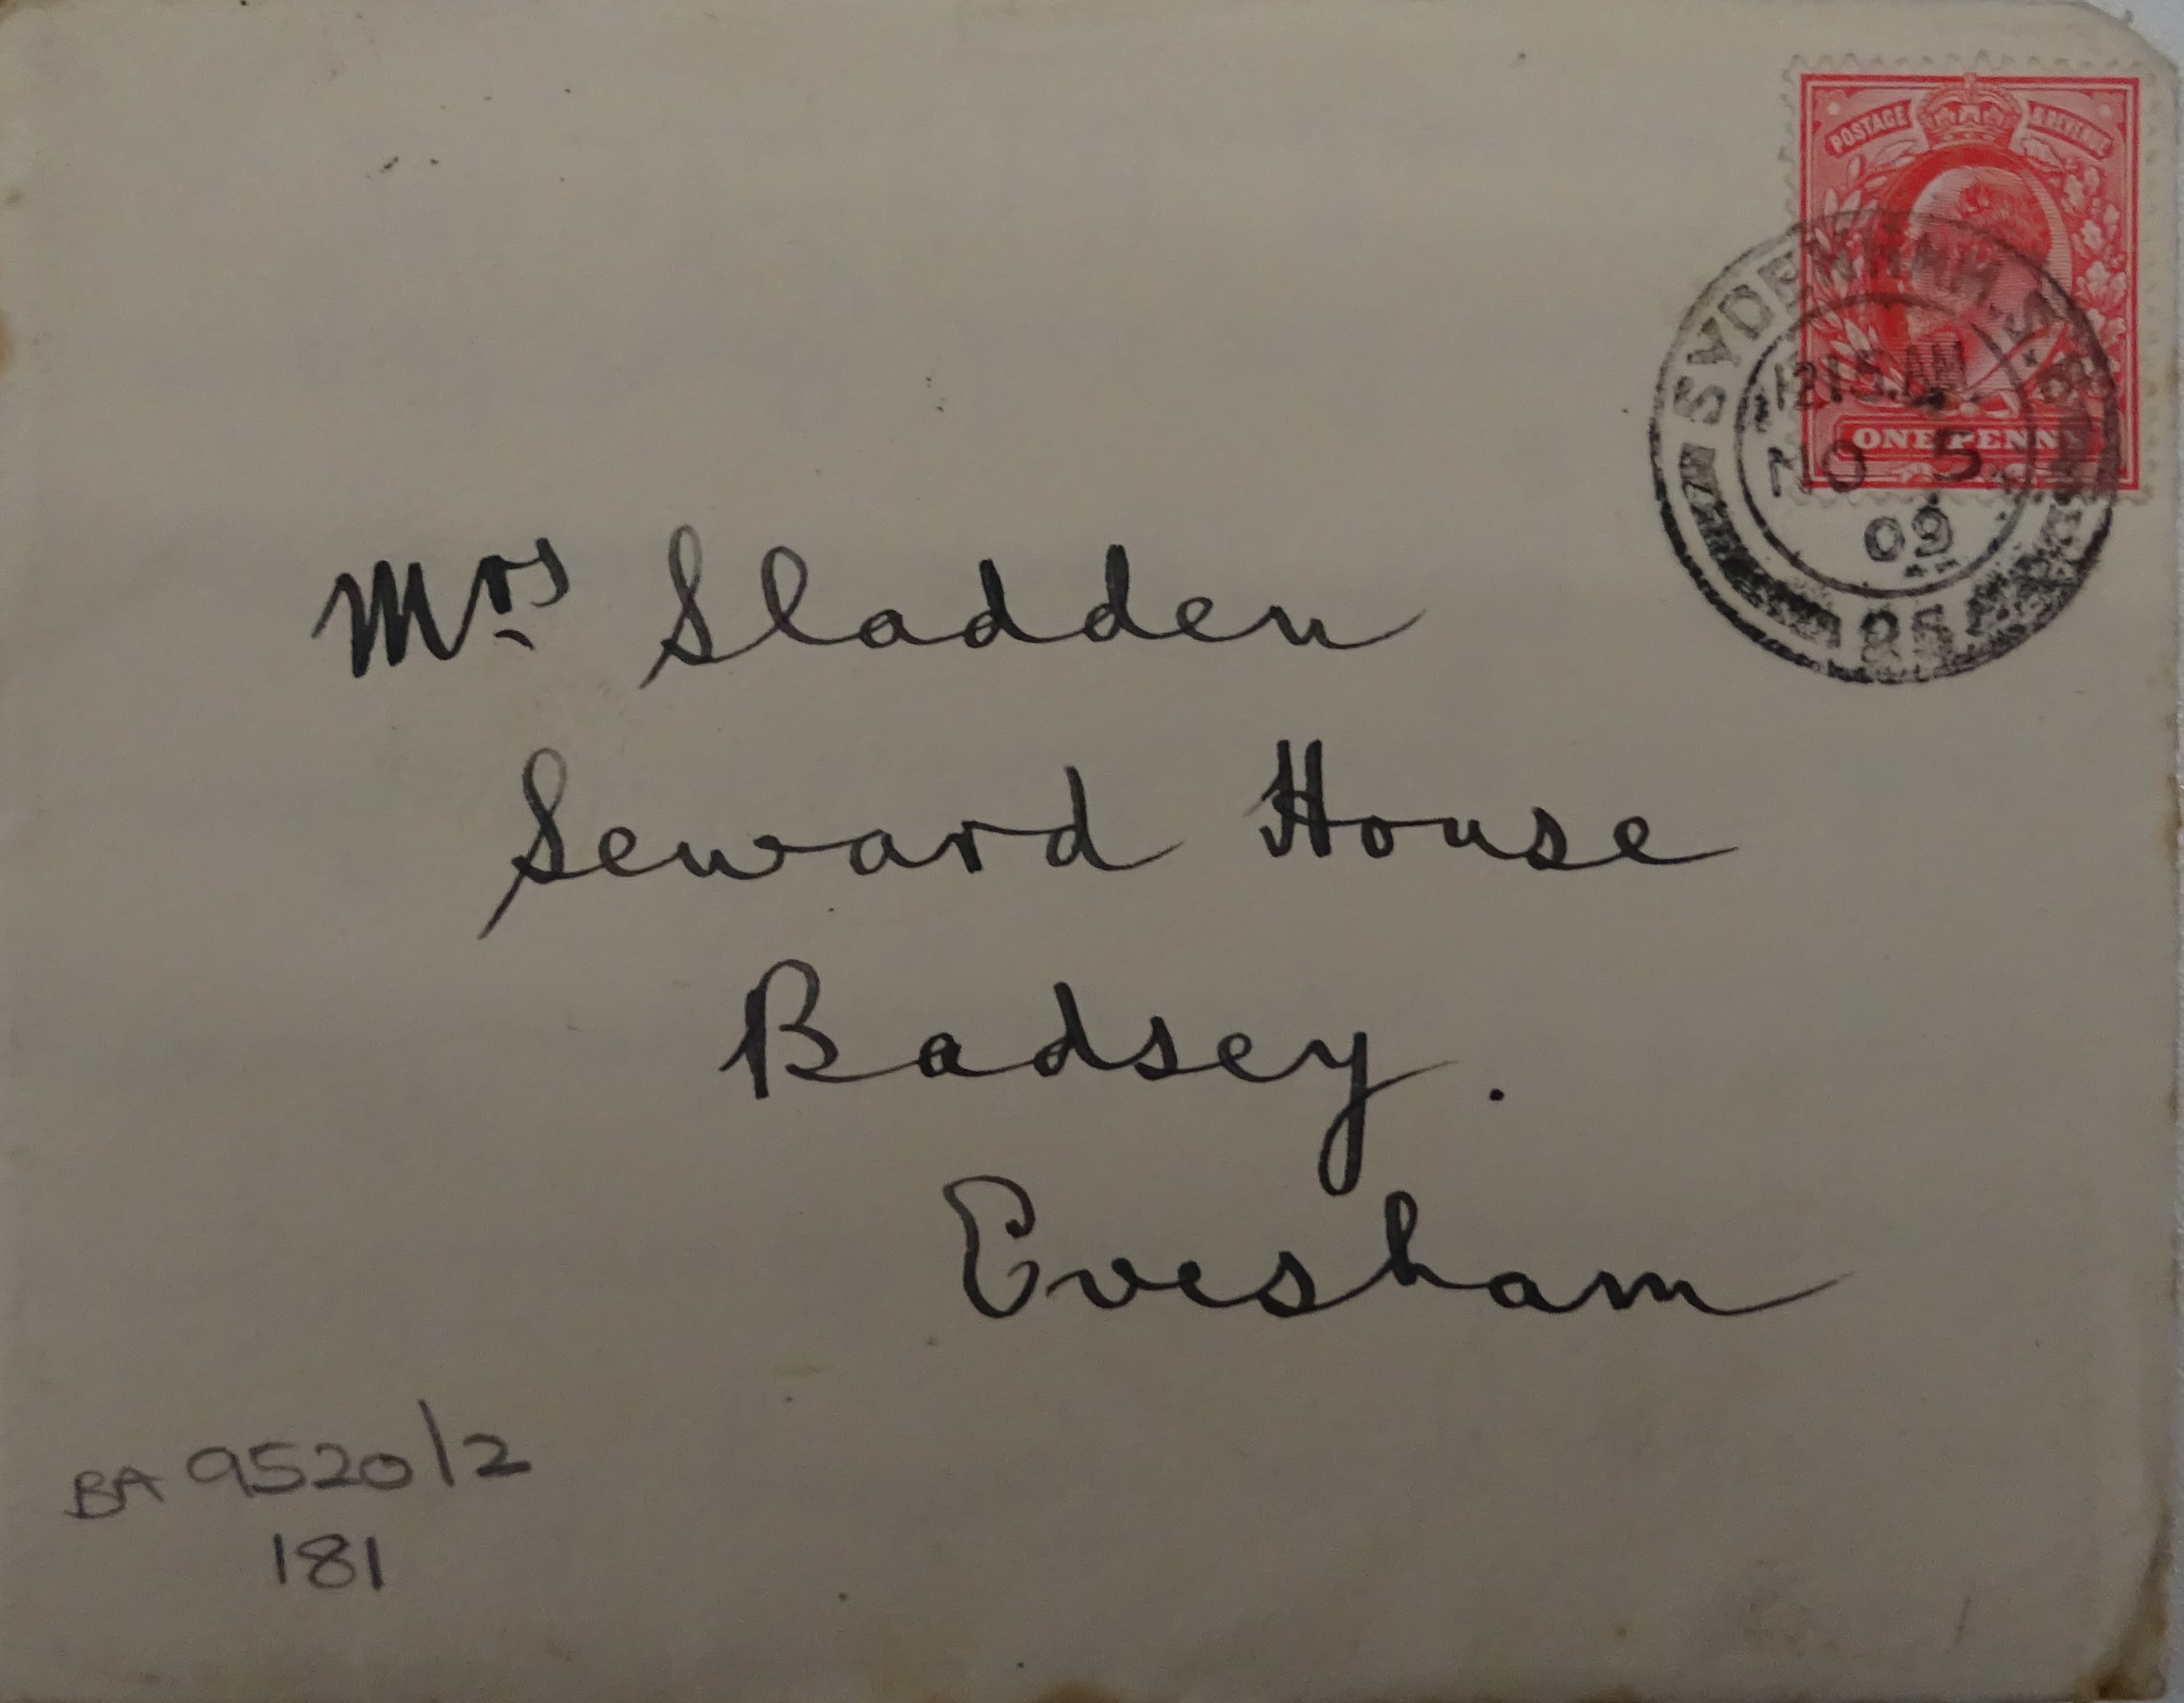 POSTAGE & REVENUE
SYDENHAM. S.E.
12 15. AM
NO 5
09
ONE PENNY
85
Mrs Sladden
Seward House
Badsey.
Evesham
BA 9520/2
181